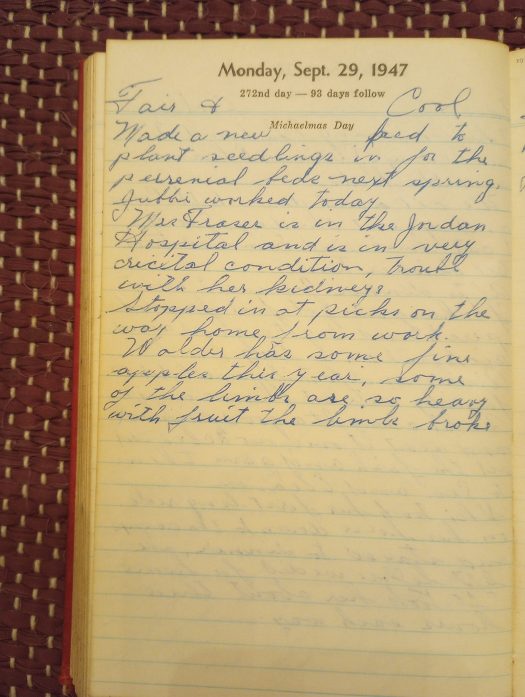 Monday, Sept. 29, 1947
272nd day — 93 days follow
Fair & Cool
Michaelmas Day
Made a new bed to
plant seedlings in for the
perrenial beds next spring.
worked today
Mrs Fraser is in the Jordan
Hospital and is in very
cricital condition, trouble
with her kidneys
Stopped in at picks on the
way home from work.
Walder has some fine
apples this year, some
of the limbs are so heavy
with fruit the limbs broke